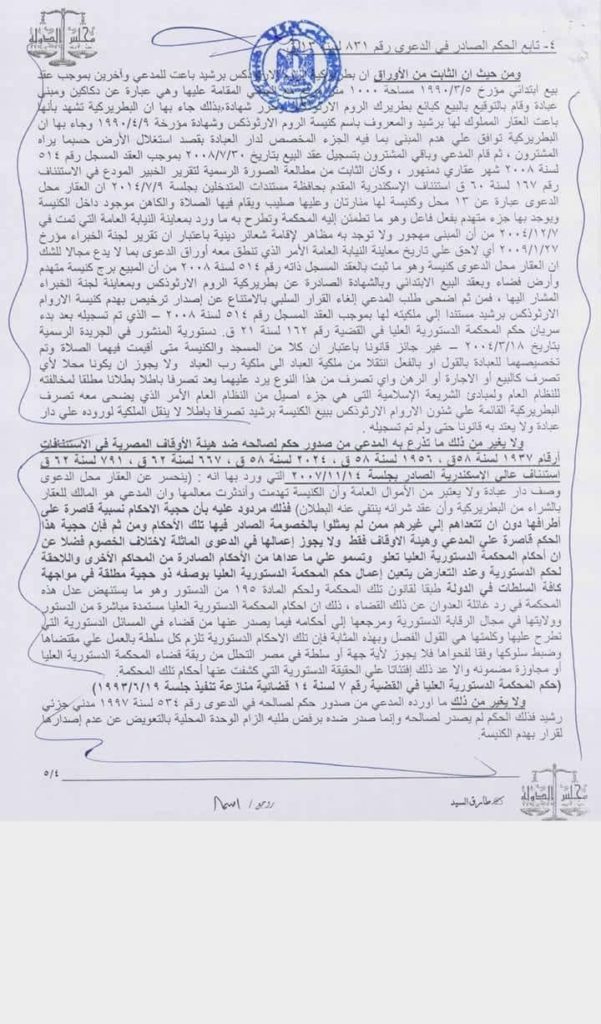 مجلس الدولة
٤- تابع الحكم الصادر في الدعوى رقم ٨٣١ لسنة
ومن حيث ان الثابت من الأوراق ان بطريركية الارثوذكس برشيد باعت للمدعي وأخرين بموجب عقد
بيع ابتدائي مؤرخ ١٩٩٠/٣/٥ مساحة ١٠٠٠ المقامة عليها وهي عبارة عن دكاكين ومبنى
عبادة وقام بالتوقيع بالبيع كبائع بطريرك الروم شهادة بذلك جاء بها ان البطريركية تشهد بأنها
باعت العقار المملوك لها برشيد والمعروف باسم كنيسة الروم الارثوذكس وشهادة مؤرخة ١٩٩٠/٤/٩ وجاء بها ان
البطريركية توافق علي هدم المبنى بما فيه الجزء المخصص لدار العبادة بقصد استغلال الأرض حسبما يراه
المشترون ، ثم قام المدعي وباقي المشترون بتسجيل عقد البيع بتاريخ ٢٠٠٨/٧/٣٠ بموجب العقد المسجل رقم ٥١٤
لسنة ٢٠٠٨ شهر عقاري دمنهور ، وكان الثابت من مطالعة الصورة الرسمية لتقرير الخبير المودع في الاستئناف
رقم ١٦٧ لسنة ٦٠ ق استئناف الإسكندرية المقدم بحافظة مستندات المتدخلين بجلسة ٢٠١٤/٧/٩ ان العقار محل
الدعوى عبارة عن ١٣ محل وكنيسة لها منارتان وعليها صليب ويقام فيها الصلاة والكاهن موجود داخل الكنيسة
ويوجد بها جزء متهدم بفعل فاعل وهو ما تطمئن إليه المحكمة وتطرح به ما ورد بمعاينة النيابة العامة التي تمت في
٢٠٠٤/١٢/٧ من أن المبنى مهجور ولا توجد به مظاهر لإقامة شعائر دينية باعتبار ان تقرير لجنة الخبراء مؤرخ
٢٠٠٩/١/٢٧ أي لاحق علي تاريخ معاينة النيابة العامة الأمر الذي تنطق معه أوراق الدعوى بما لا يدع مجالا للشك
ان العقار محل الدعوى كنيسة وهو ما ثبت بالعقد المسجل ذاته رقم ٥١٤ لسنة ٢٠٠٨ من أن المبيع برج كنيسة متهدم
وأرض فضاء وبعقد البيع الابتدائي وبالشهادة الصادرة عن بطريركية الروم الارثوذكس وبمعاينة لجنة الخبراء
المشار اليها ، فمن ثم اضحى طلب المدعي إلغاء القرار السلبي بالامتناع عن إصدار ترخيص بهدم كنيسة الاروام
الارثوذكس برشيد مستندا إلي ملكيته لها بموجب العقد المسجل رقم ٥١٤ لسنة ٢٠٠٨ – الذي تم تسجيله بعد بدء
سريان حكم المحكمة الدستورية العليا في القضية رقم ١٦٢ لسنة ٢١ ق. دستورية المنشور في الجريدة الرسمية
بتاريخ ٢٠٠٤/٣/١٨ – غير جائز قانونا باعتبار ان كلا من المسجد والكنيسة متى أقيمت فيهما الصلاة وتم
تخصيصهما للعبادة بالقول او بالفعل انتقلا من ملكية العباد الى ملكية رب العباد ولا يجوز ان يكونا محلا لأي
تصرف كالبيع او الاجارة أو الرهن واي تصرف من هذا النوع يرد عليهما يعد تصرفا باطلا بطلانا مطلقا لمخالفته
للنظام العام ولمبادئ الشريعة الإسلامية التي هي جزء اصيل من النظام العام الأمر الذي يضحى معه تصرف
البطريركية القائمة علي شئون الاروام الارثوذكس ببيع الكنيسة برشيد تصرفا باطلا لا ينقل الملكية لوروده علي دار
عبادة ولا يعتد به قانونا حتى ولم تم تسجيله .
ولا يغير من ذلك ما تذرع به المدعي من صدور حكم لصالحه ضد هيئة الأوقاف المصرية في الاستئنافات
أرقام ١٩٣٧ لسنة ٥٨ ق ، ١٩٥٦ لسنة ٥٨ ق ، ٢٠٢٤ لسنة ٥٨ ق ، ٦٦٧ لسنة ٦٢ ق ، ٧٩١ لسنة ٦٢ ق
استئناف عالي الإسكندرية الصادر بجلسة ٢٠٠٧/١١/١٤ التي ورد بها انه : (ينحسر عن العقار محل الدعوى
وصف دار عبادة ولا يعتبر من الأموال العامة وأن الكنيسة تهدمت وأندثرت معالمها وان المدعي هو المالك للعقار
بالشراء من البطريركية وأن عقد شرائه ينتفي عنه البطلان) فذلك مردود عليه بأن حجية الاحكام نسبية قاصرة علي
أطرافها دون ان تتعداهم إلي غيرهم ممن لم يمثلوا بالخصومة الصادر فيها تلك الأحكام ومن ثم فإن حجية هذا
الحكم قاصرة علي المدعي وهيئة الاوقاف فقط ولا يجوز إعمالها في الدعوى الماثلة لاختلاف الخصوم فضلا عن
ان أحكام المحكمة الدستورية العليا تعلو وتسمو علي ما عداها من الأحكام الصادرة من المحاكم الأخرى واللاحقة
لحكم الدستورية وعند التعارض يتعين إعمال حكم المحكمة الدستورية العليا بوصفه ذو حجية مطلقة في مواجهة
كافة السلطات في الدولة طبقا لقانون تلك المحكمة ولحكم المادة ١٩٥ من الدستور وهو ما يستنهض عدل هذه
المحكمة في رد غائلة العدوان عن ذلك القضاء ، ذلك ان احكام المحكمة الدستورية العليا مستمدة مباشرة من الدستور
وولايتها في مجال الرقابة الدستورية ومرجعها إلي أحكامه فيما يصدر عنها من قضاء في المسائل الدستورية التي
تطرح عليها وكلمتها هي القول الفصل وبهذه المثابة فإن تلك الاحكام الدستورية تلزم كل سلطة بالعمل علي مقتضاها
وضبط سلوكها وفقا لفحواها فلا يجوز لأية جهة أو سلطة في مصر التحلل من ربقة قضاء المحكمة الدستورية العليا
أو مجاوزة مضمونه والا عد ذلك إفتئاتا علي الحقيقة الدستورية التي كشفت عنها أحكام تلك المحكمة.
(حكم المحكمة الدستورية العليا في القضية رقم ٧ لسنة ١٤ قضائية منازعة تنفيذ جلسة ١٩٩٣/٦/١٩)
ولا يغير من ذلك ما اورده المدعي من صدور حكم لصالحه في الدعوى رقم ٥٣٤ لسنة ١٩٩٧ مدني جزئي
رشيد فذلك الحكم لم يصدر لصالحه وإنما صدر ضده برفض طلبه الزام الوحدة المحلية بالتعويض عن عدم إصدارها
لقرار بهدم الكنيسة.
٥/٤
طارق السيد
مجلس الدولة